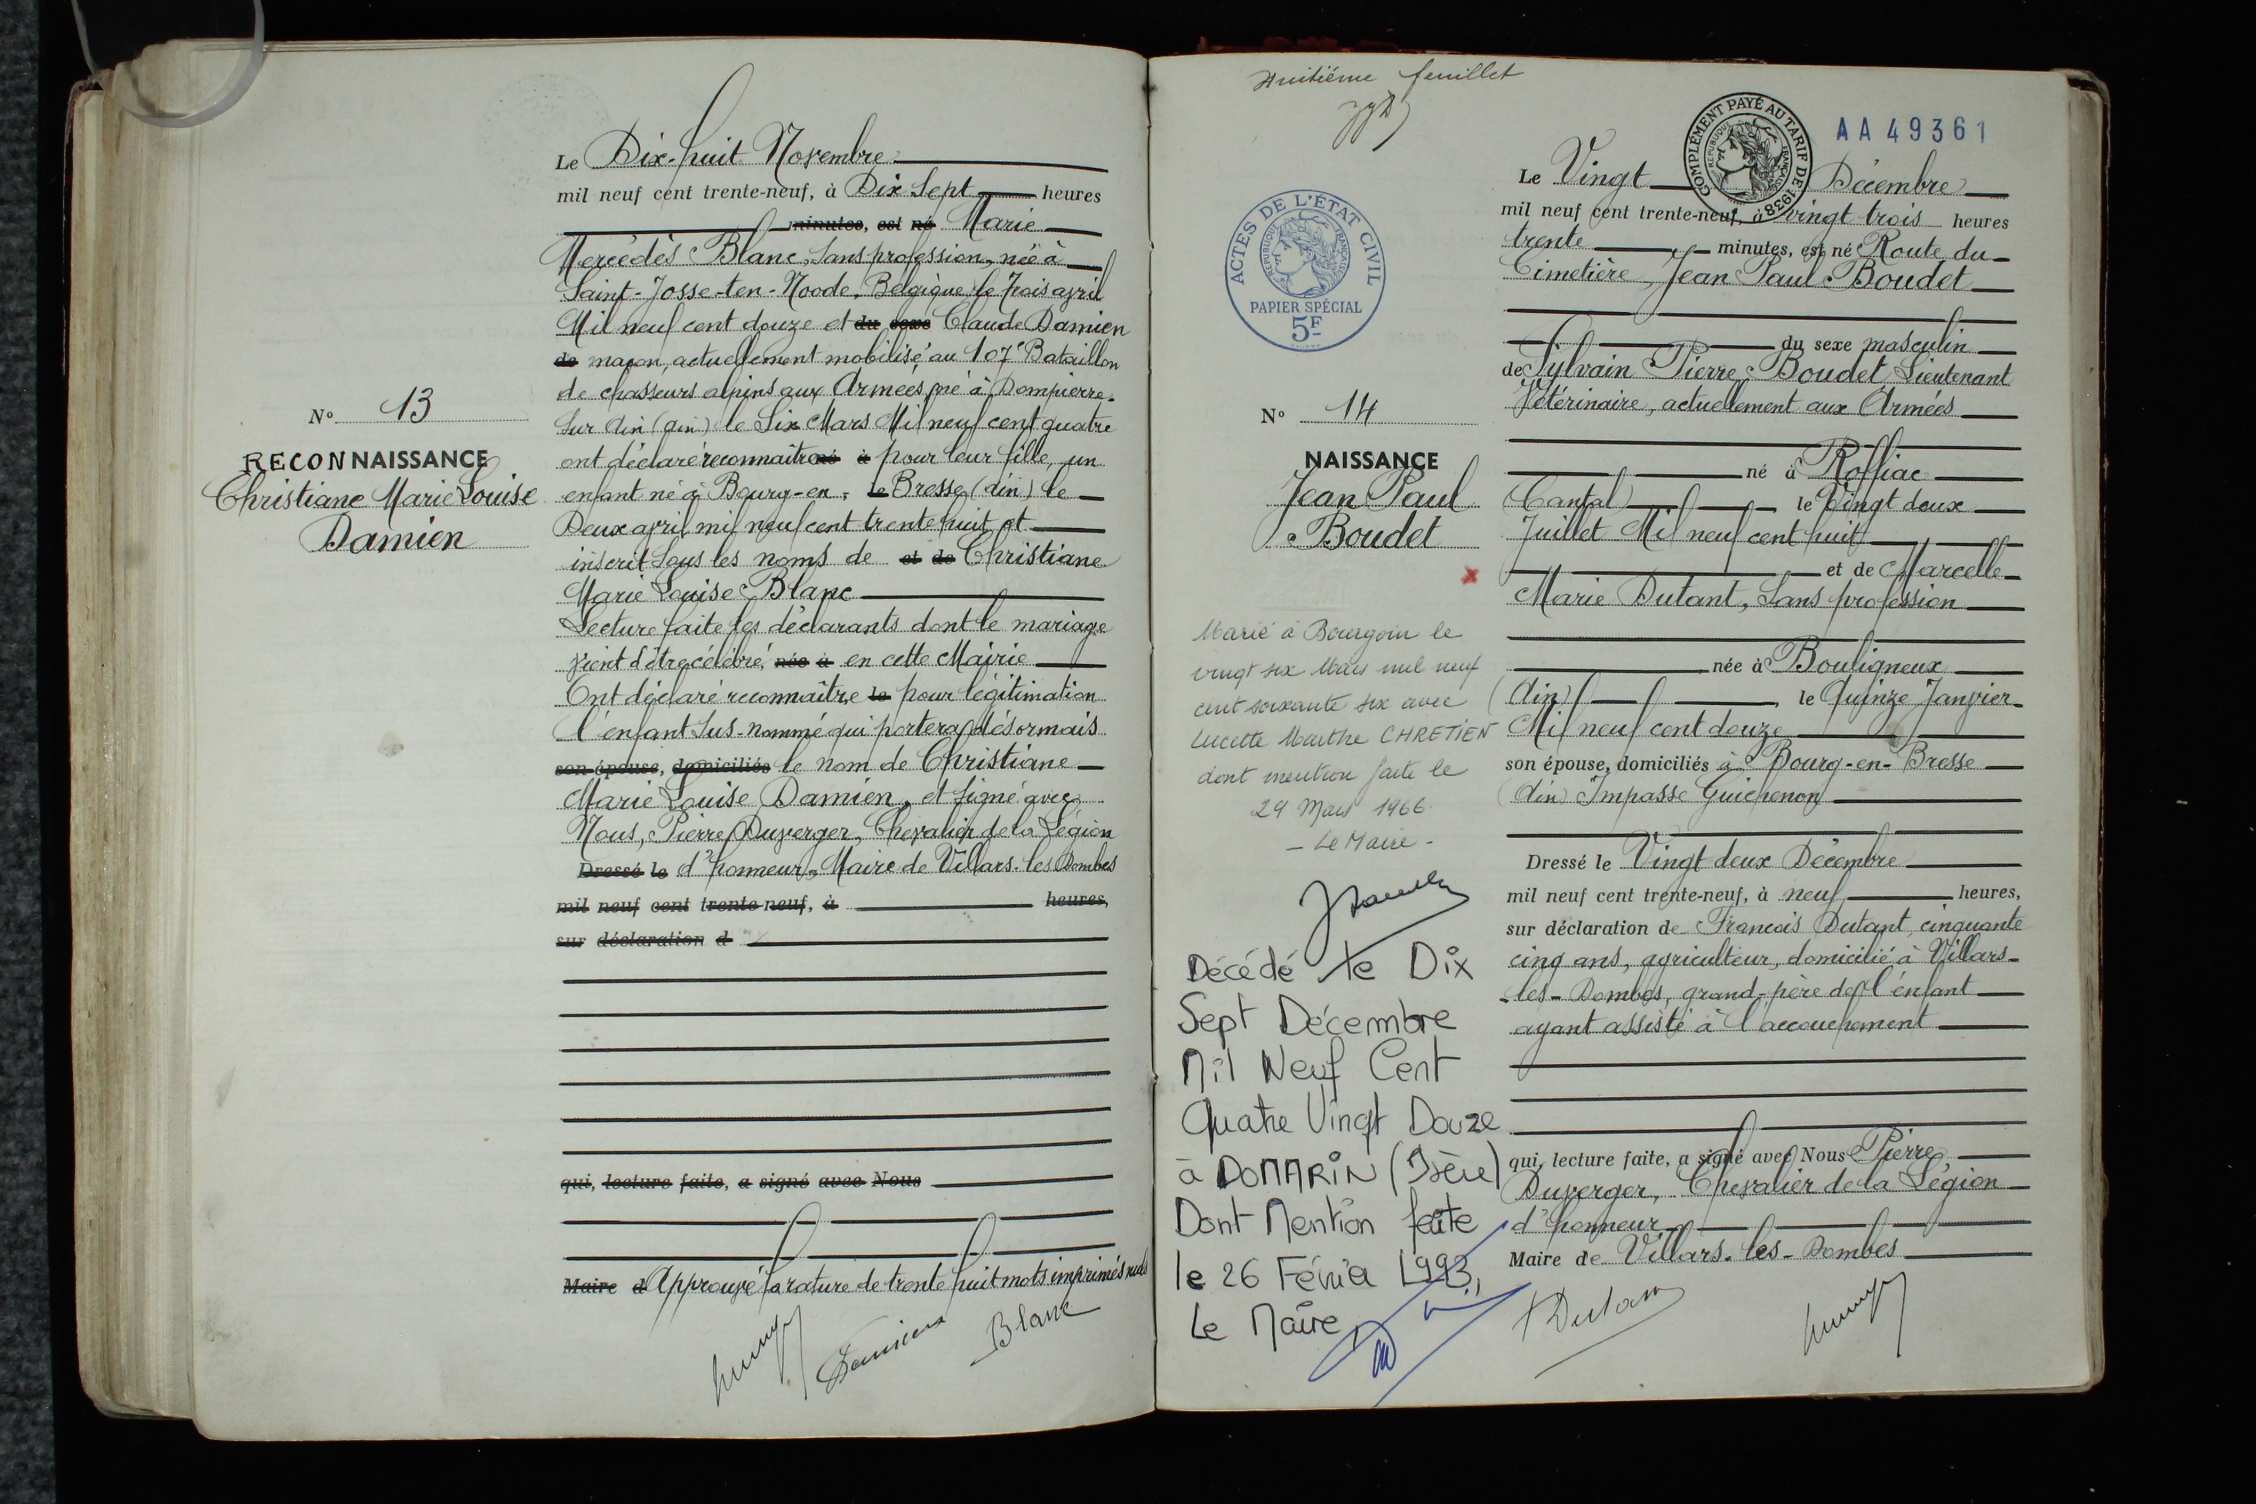 N° 13
RECONNAISSANCE
Christiane Marie Louise
Damien
Le Dix-huit Novembre
mil neuf cent trente-neuf, à Dix Sept heures
minutes, est né Marie
Mercédès Blanc, sans profession, née à
Saint-Josse-ten-Noode, Belgique, le trois avril
Mil neuf cent douze et du sexe Claude Damien
de maçon, actuellement mobilisé au 107e Bataillon
de chasseurs alpins aux Armées, né à Dompierre-
sur Ain (Ain) le Six Mars Mil neuf cent quatre
ont déclaré reconnaitre né à pour leur fille, un
enfant né à Bourg-en- le Bresse (Ain) le
Deux avril mil neuf cent trente huit et
inscrit sous les noms de et de Christiane
Marie Louise Blanc
Lecture faite les déclarants dont le mariage
vient d'être célébré, née à en cette Mairie
Ont déclaré reconnaitre le pour légitimation
l'enfant sus-nommé qui portera désormais
son épouse, domiciliés le nom de Christiane
Marie Louise Damien, et signé avec
Nous, Pierre Duverger, Chevalier de la Légion
Dressé le d'honneur, Maire de Villars-les Dombes
mil neuf cent trente-neuf, à heures,
sur déclaration d
qui, lecture faite, a signé avec Nous
Maire d Approuvé la rature de trente huit mots imprimés nuls
Damien
Blanc
Huitième feuillet
COMPLÉMENT PAYÉ AU TARIF DE 1938
REPUBLIQUE FRANÇAISE
AA 49361
ACTES DE L'ÉTAT CIVIL
REPUBLIQUE FRANÇAISE
PAPIER SPÉCIAL
5F
N° 14
NAISSANCE
Jean Paul
Boudet
Marié à Bourgoin le
vingt six Mars mil neuf
cent soixante six avec
Lucette Marthe CHRETIEN
dont mention faite le
29 Mars 1966
- Le Maire -
Décédé le Dix
Sept Décembre
Mil Neuf Cent
Quatre Vingt Douze
à DOMARIN (Isère)
Dont Mention faite
le 26 Février 1993,
Le Maire,
Le Vingt Décembre
mil neuf cent trente-neuf, à vingt trois heures
trente minutes, est né Route du
Cimetière, Jean Paul Boudet
du sexe masculin
de Sylvain Pierre Boudet, Lieutenant
Vétérinaire, actuellement aux Armées
né à Roffiac
(Cantal) le Vingt deux
Juillet Mil neuf cent huit
et de Marcelle
Marie Dutant, Sans profession
née à Bouligneux
(Ain) le Quinze Janvier
Mil neuf cent douze
son épouse, domiciliés à Bourg-en-Bresse
(Ain) Impasse Guichenon
Dressé le Vingt deux Décembre
mil neuf cent trente-neuf, à neuf heures,
sur déclaration de François Dutant, cinquante
cinq ans, agriculteur, domicilié à Villars-
-les-Dombes, grand-père de l'enfant
ayant assisté à l'accouchement
qui, lecture faite, a signé avec Nous Pierre
Duverger, Chevalier de la Légion
d'honneur
Maire de Villars-les-Dombes
Dutant